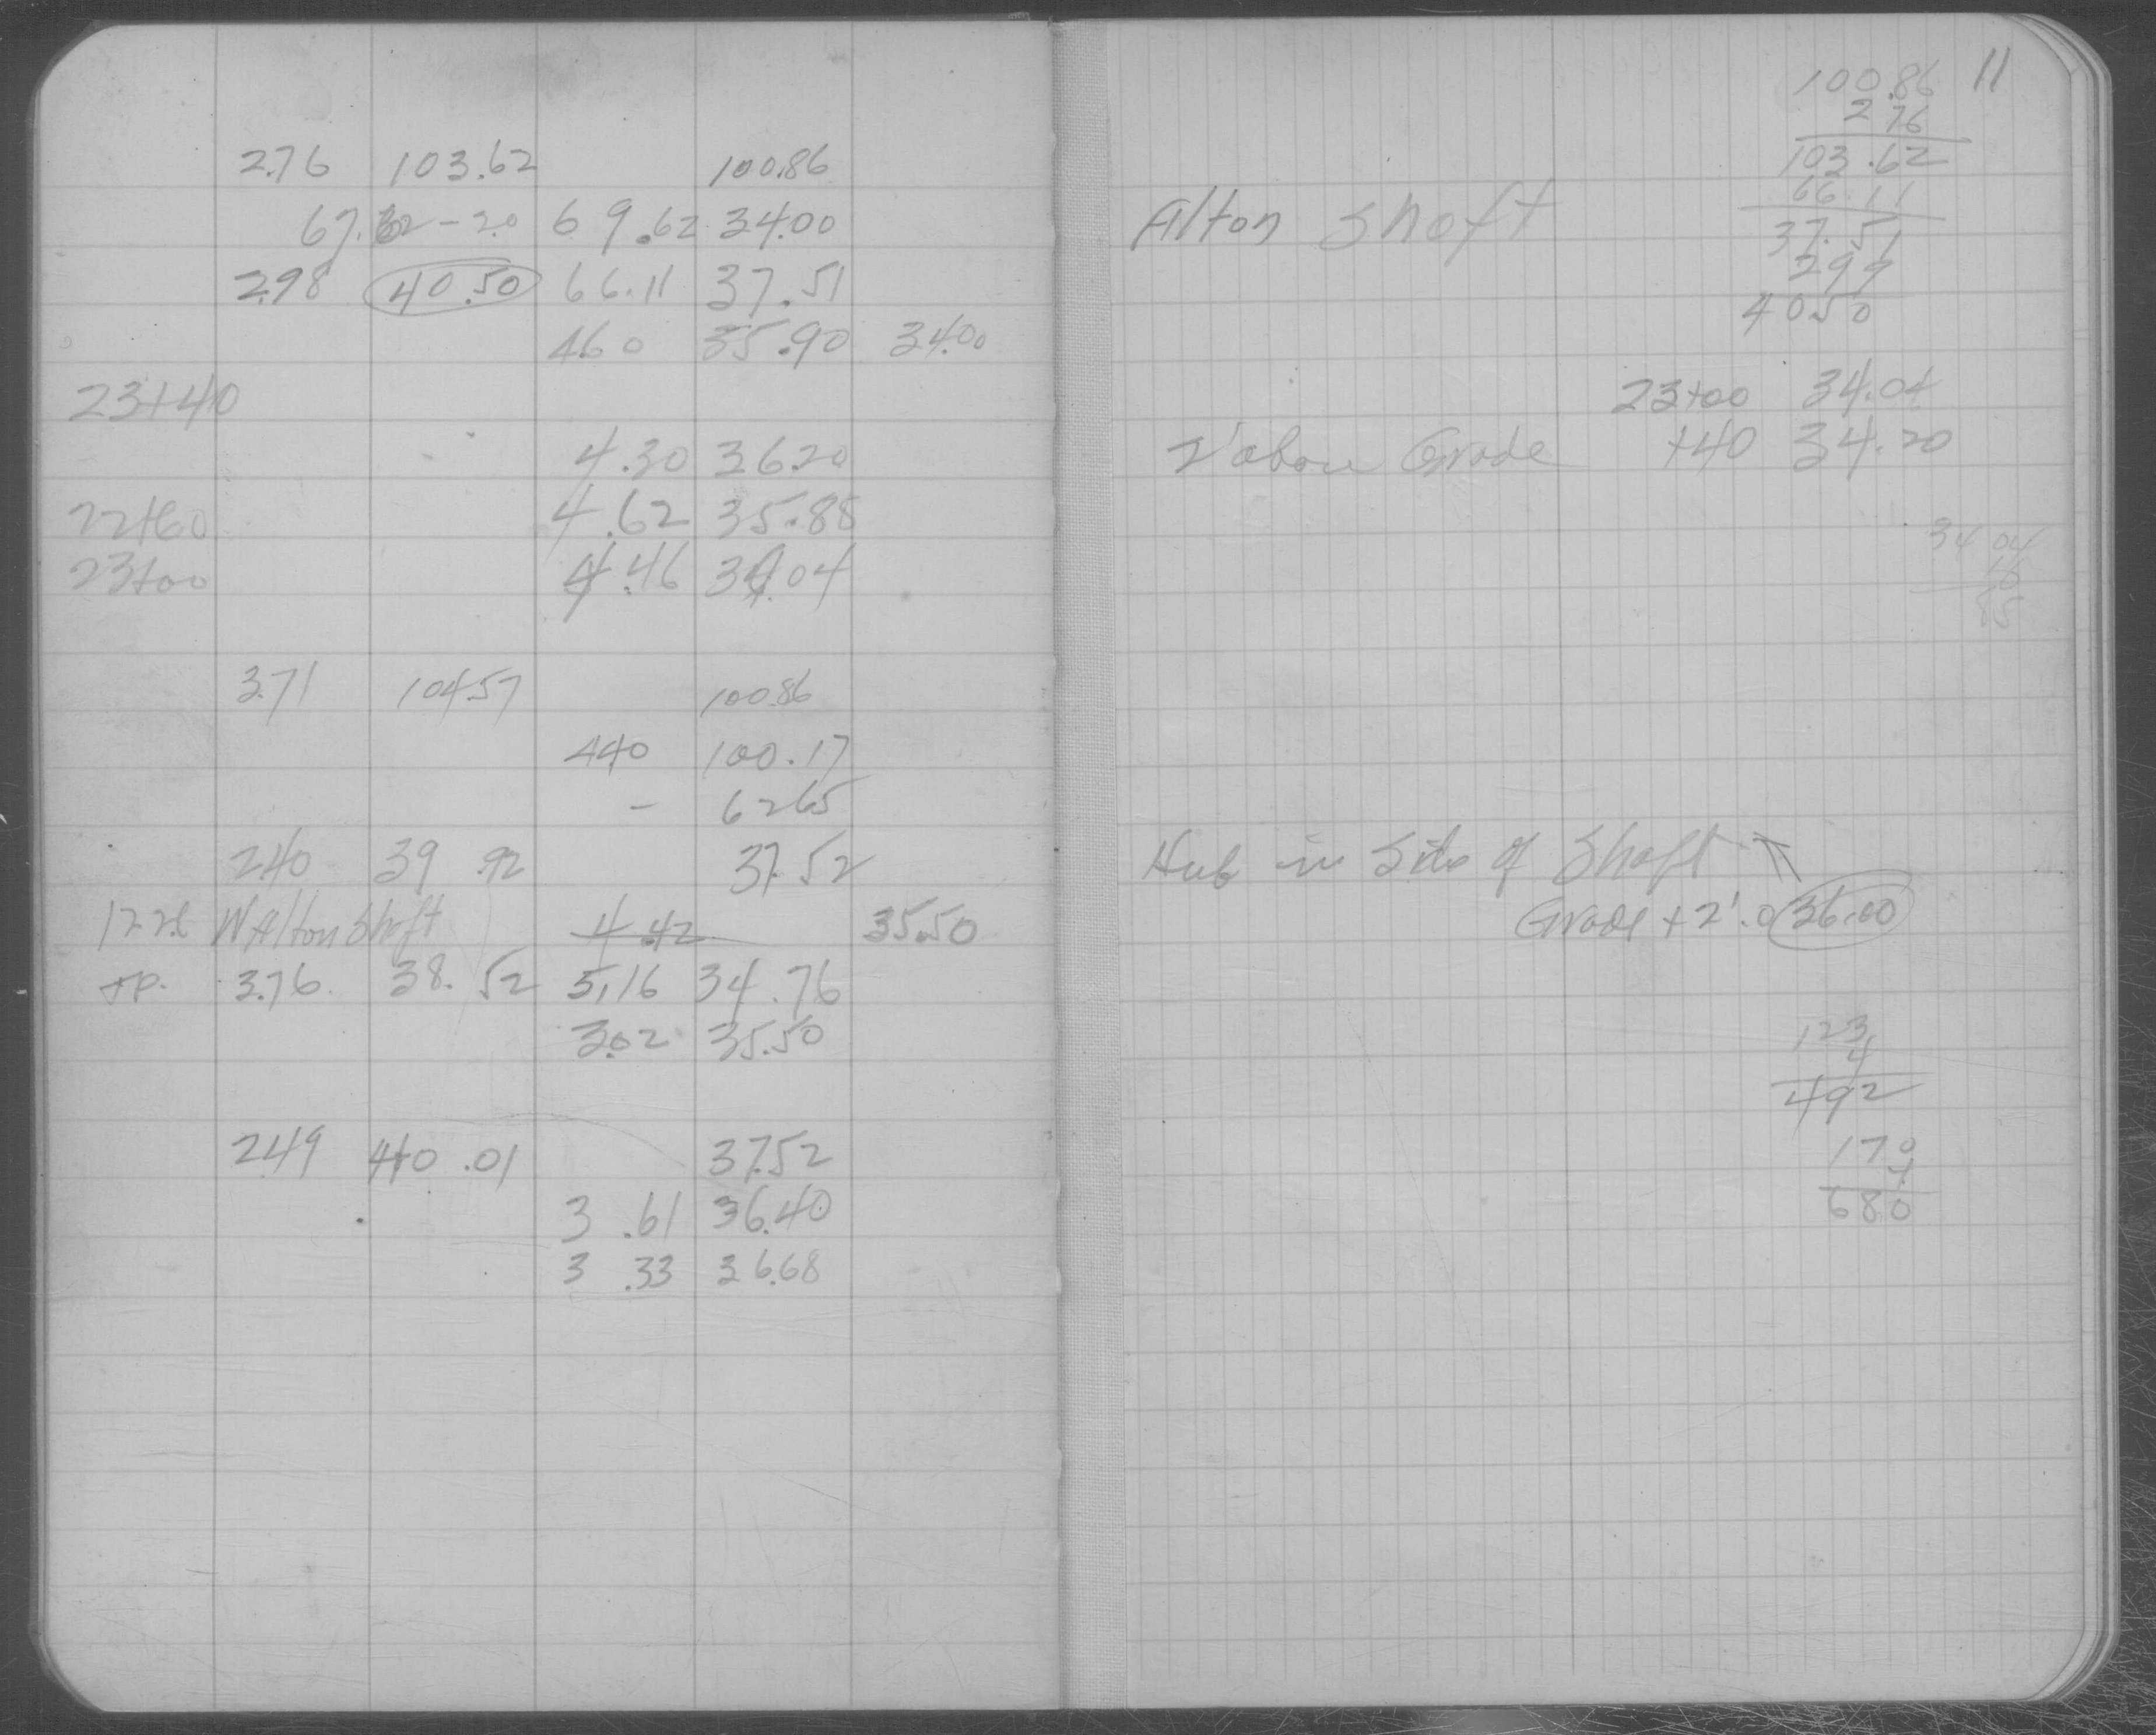 2.76 103.62 100.86
67.62-2.0 69.62 34.00
2.98 40.50 66.11 37.51
4.60 35.90 34.00
23+40
4.30 36.20
22+60 4.62 35.88
23+00 4.46 34.04
3.71 104.57 100.86
4.40 100.17
- 62.65
2.40 39.92 37.52
W Alton Shaft 4.42 35.50
TP. 3.76 38.52 5.16 34.76
3.02 35.50
2.49 40.01 37.52
3.61 36.40
3.33 36.68
11
100.86
2.76
103.62
66.11
37.51
2.99
40.50
Alton Shaft
23+00 34.04
2' above Grade +40 34.20
34 04
16
Hub in Side of Shaft
Grade + 2'.0 36.00
123
4
492
170
4
680